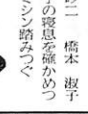 砂二 橋本 淑子
子の寝息を確かめつ
ミシン踏みつぐ